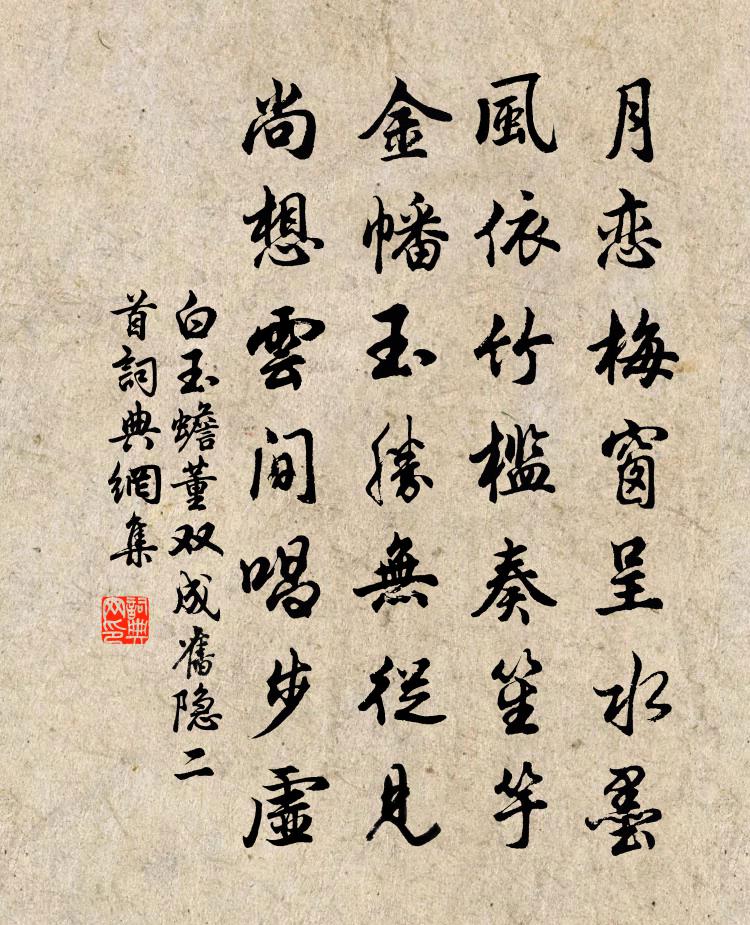 月恋梅窗呈水墨
風依竹檻奏笙竽
金幡玉勝無從見
尚想雲間唱步虛
白玉蟾董双成舊隐二
首詞典網集
詞典
网印